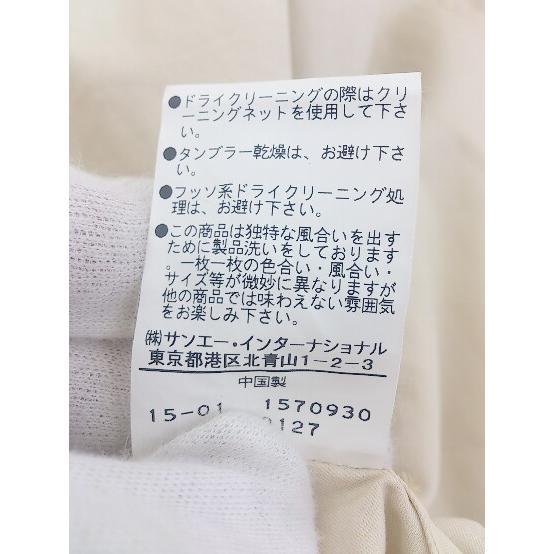 ●ドライクリーニングの際はクリ
ーニングネットを使用して下さ
い。
●タンブラー乾燥は、お避け下さ
い。
●フッソ系ドライクリーニング処
理は、お避け下さい。
●この商品は独特な風合いを出す
ために製品洗いをしております
。一枚一枚の色合い・風合い・
サイズ等が微妙に異なりますが
他の商品では味わえない雰囲気
をお楽しみ下さい。
㈱サンエー・インターナショナル
東京都港区北青山1-2-3
中国製
15-01 1570930
127